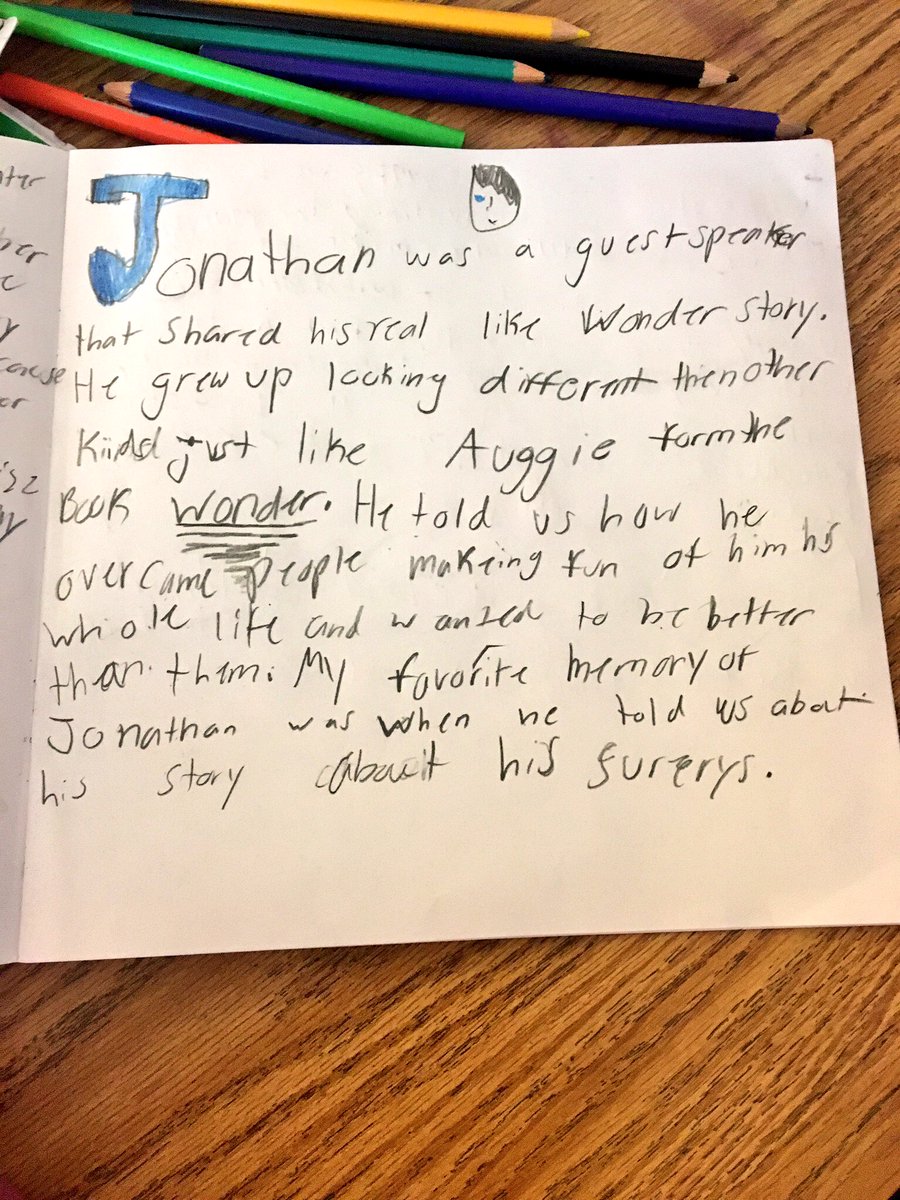 Jonathan was a guest speaker
that Shared his real like Wonder story.
He grew up looking different then other
Kids just like Auggie form the
Book wonder. He told us how he
overcame people makeing fun of him his
whole life and wanted to be better
than them. My favorite memory of
Jonathan was when he told us about
his story about his surerys.